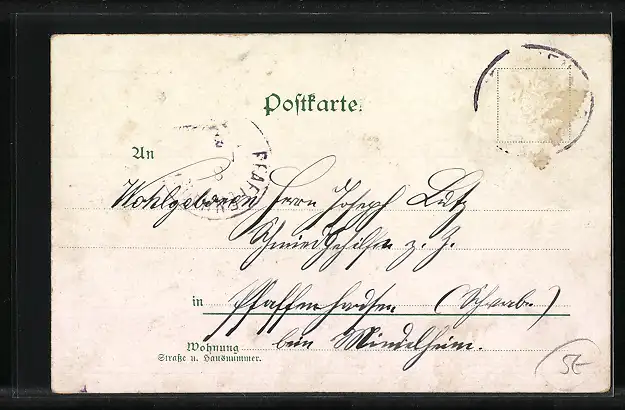 Postkarte.
An
Wohlgeboren Herrn Joseph Lutz
Schmiedgehilfe z. Z.
in Pfaffenhausen (Schwab.)
Wohnung bei Mindelheim.
Straße u. Hausnummer.
PFAFFEN
5E